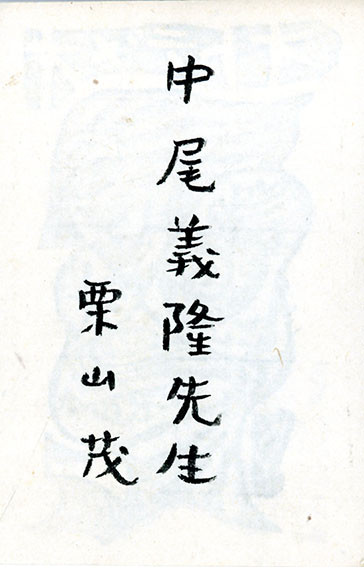 中尾義隆先生
栗山茂